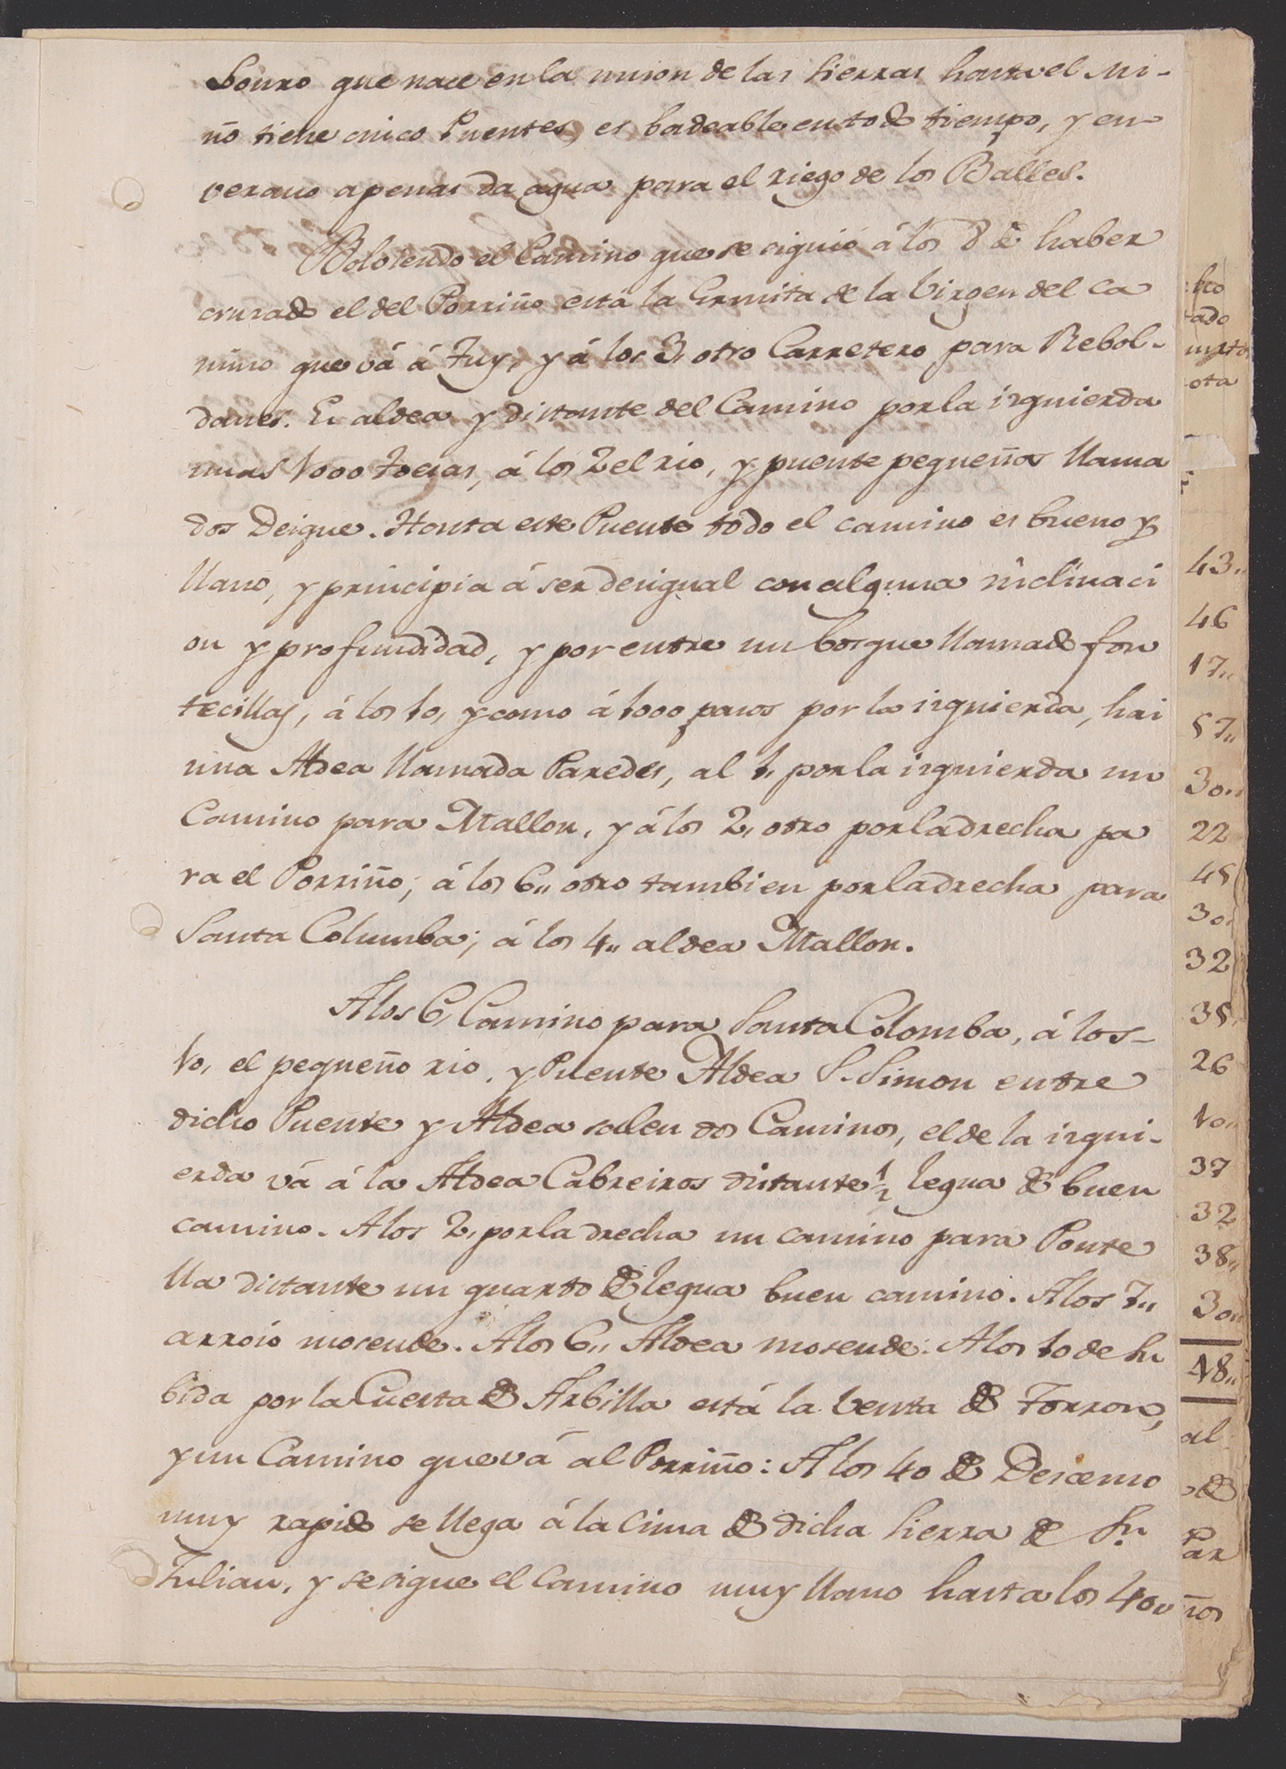 Louro que nace en la union de las Sierras hasta el Mi-
ño tiene cinco Puentes, es badeable en todo tiempo, y en
verano apenas da agua para el riego de los Balles.
Bolbiendo el Camino que se siguió á los 8 de haber
cruzado el del Porriño está la Ermita de la Virgen del Ca
mino que vá á Tuy, y á los 3, otro Carretero para Rebol-
danes. Es aldea y distante del Camino por la izquierda
unas 1000 toesas, á los 2 el rio, y puente pequeños llama
dos Deique. Hasta este Puente todo el camino es bueno y
llano, y principia á ser desigual con alguna inclinaci
on y profundidad, y por entre un bosque llamado fon
tecillas, á los 10, y como á 1000 pasos por la izquierda, hai
una Aldea llamada Paredes, al 1, por la izquierda un
Camino para Mallon, y á los 2, otro por la drecha pa
ra el Porriño; á los 6,, otro tambien por la drecha para
Santa Columba; á los 4,, aldea Mallon.
A los 6, Camino para Santa Colomba, á los-
10, el pequeño rio, y Puente Aldea S. Simon entre
dicho Puente y Aldea salen dos Caminos, el de la izqui-
erda vá á la Aldea Cabreiros distante 1/2 legua de buen
camino. A los 2, por la drecha un camino para Ponte
lla distante un quarto de legua buen camino. A los 7,,
arroio mosende. A los 6,, Aldea mosende: A los 10 de su
bida por la Cuesta de Arbilla está la Venta de Torron,
y un Camino que vá al Porriño: A los 40 de Desenso
muy rapido se llega á la Cima de dicha Sierra de Sn.
Julian, y se sigue el Camino muy llano hasta los 40,,
tado
ota
43,,
46
17,,
57,,
30,,
22
45
30,
32
35,
26
10,,
37
32
38,,
30,,
48,,
al
de
Par
ños